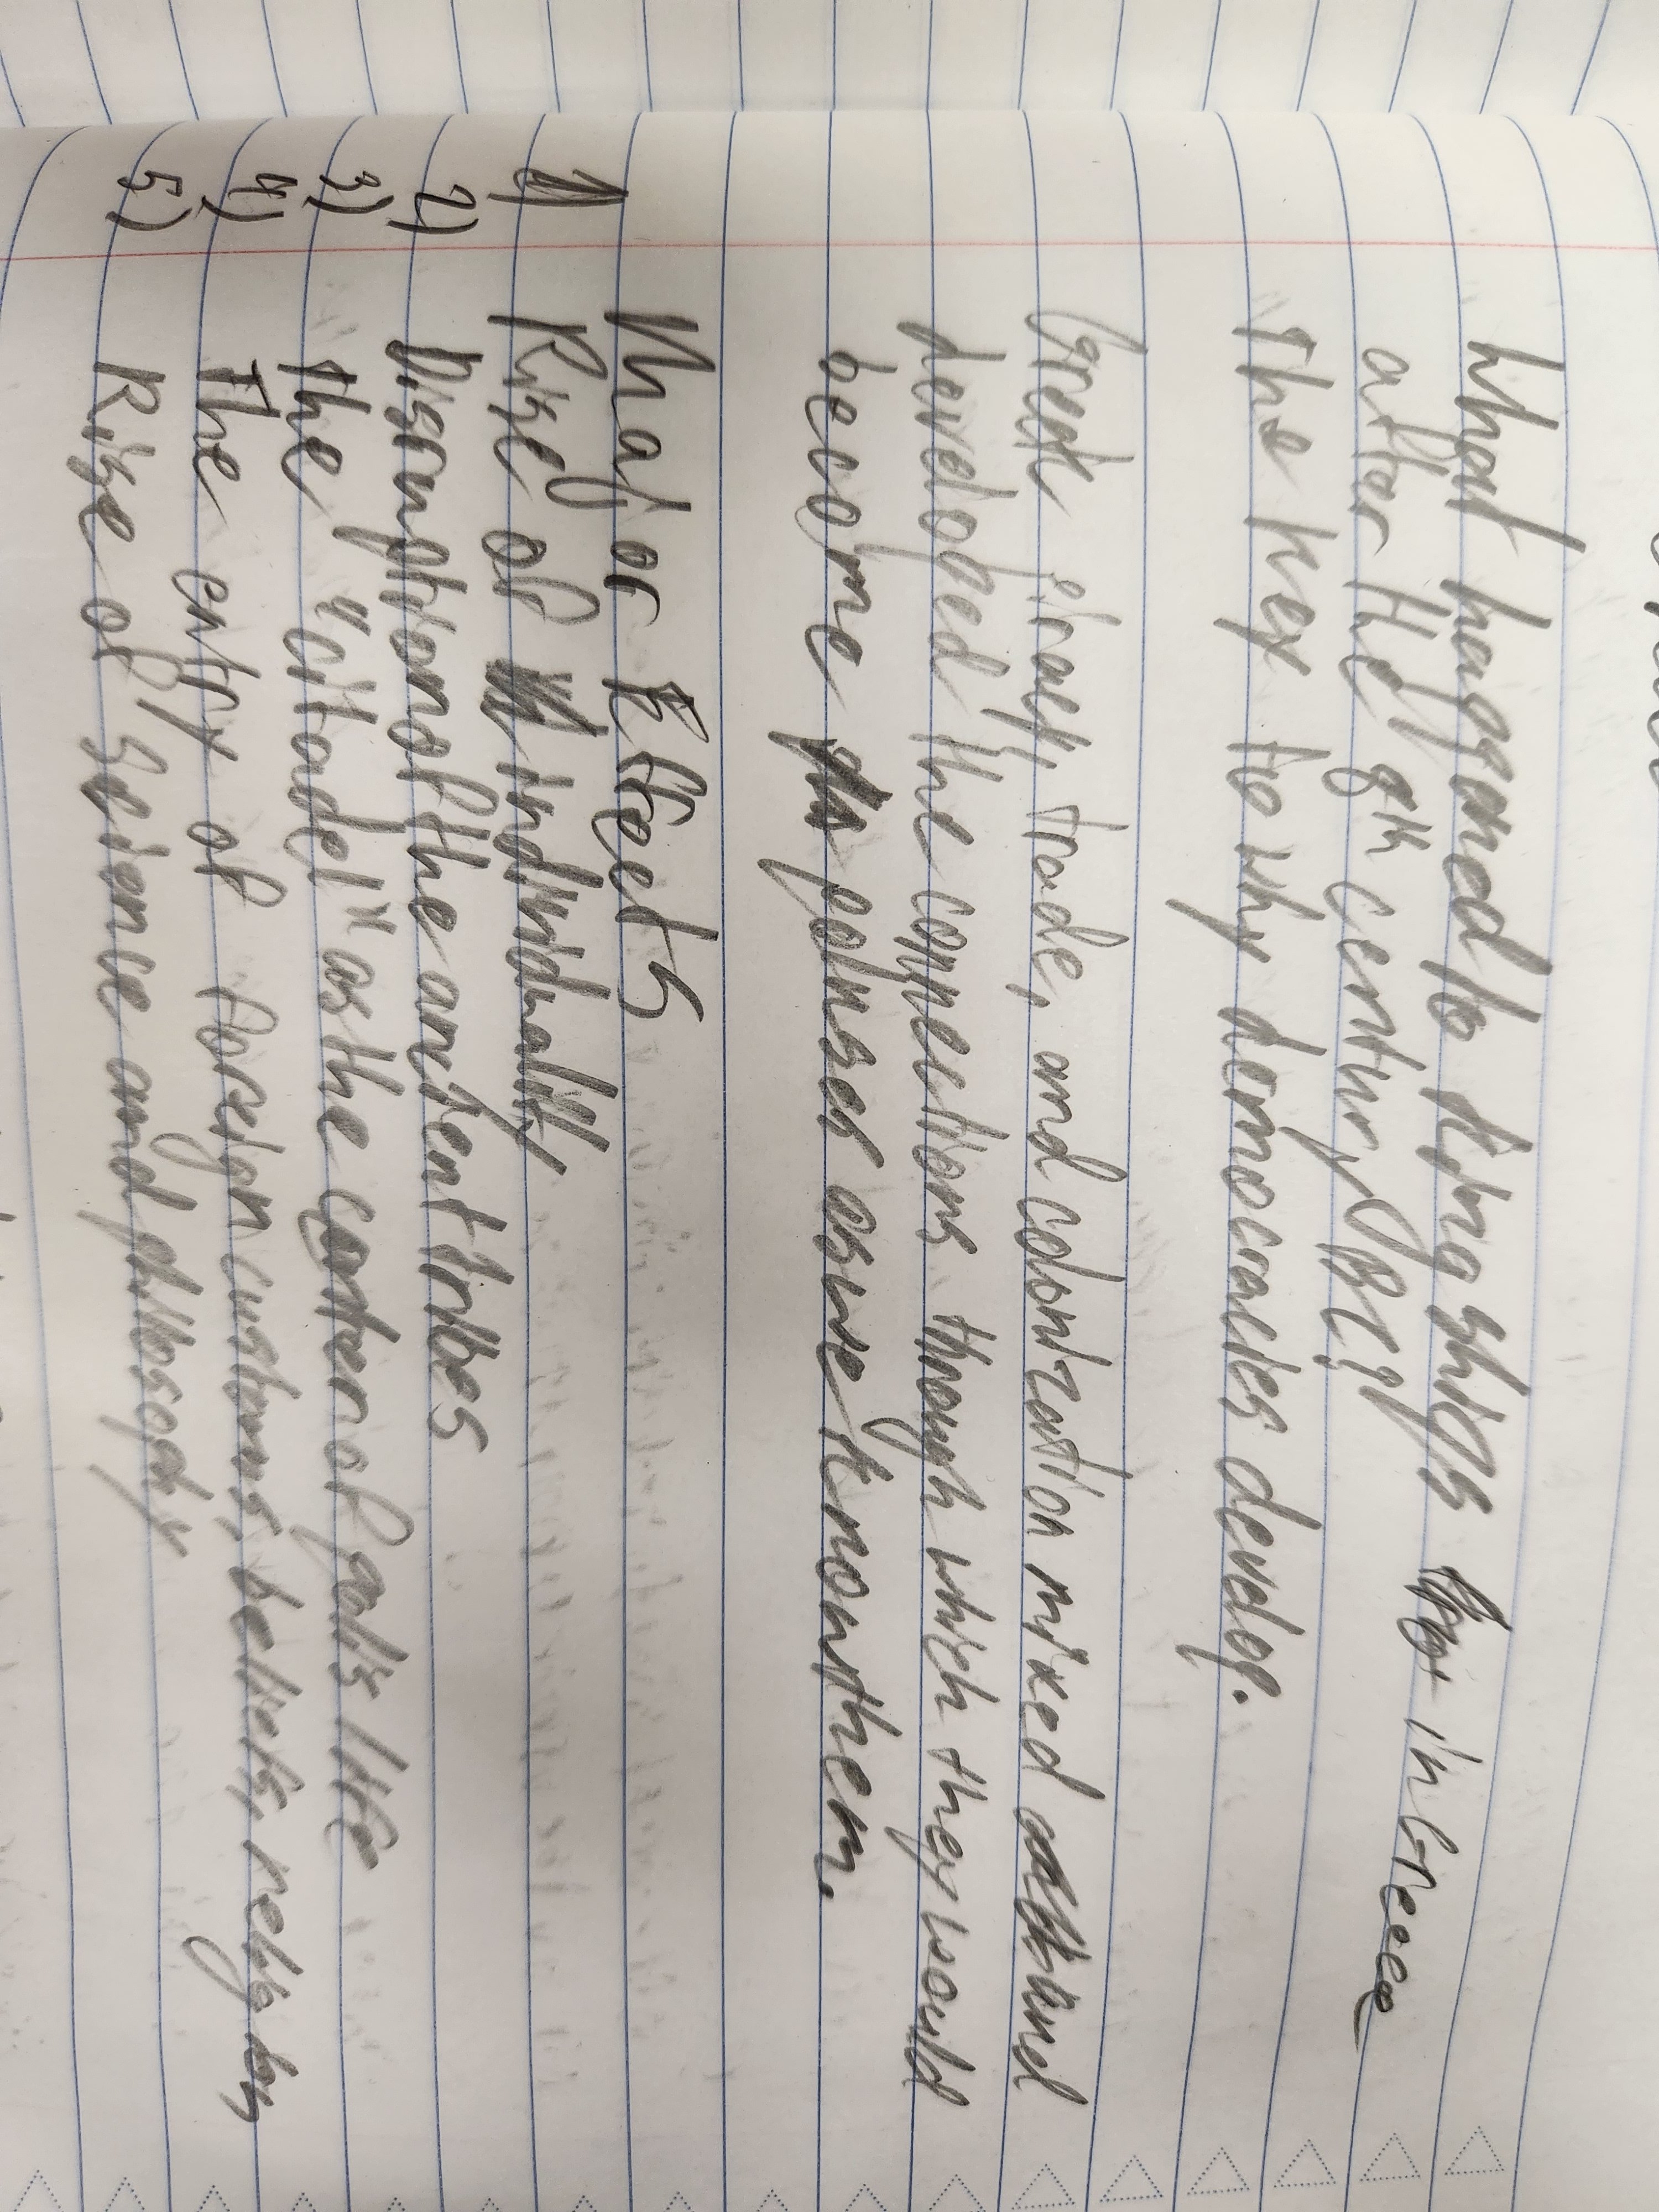 What happened to kingships in Greece
after the 8th century BC?
The key to why democracies develop.
Greek travel, trade, and colonization mixed and
developed the connections through which they would
become poleis as we know them.
Major Effects
1) Rise of individuality
2) Disruption of the ancient tribes
3) the "citadel" as the center of polis life
4) The entry of foreign customs, beliefs, religions
5) Rise of Science and philosophy